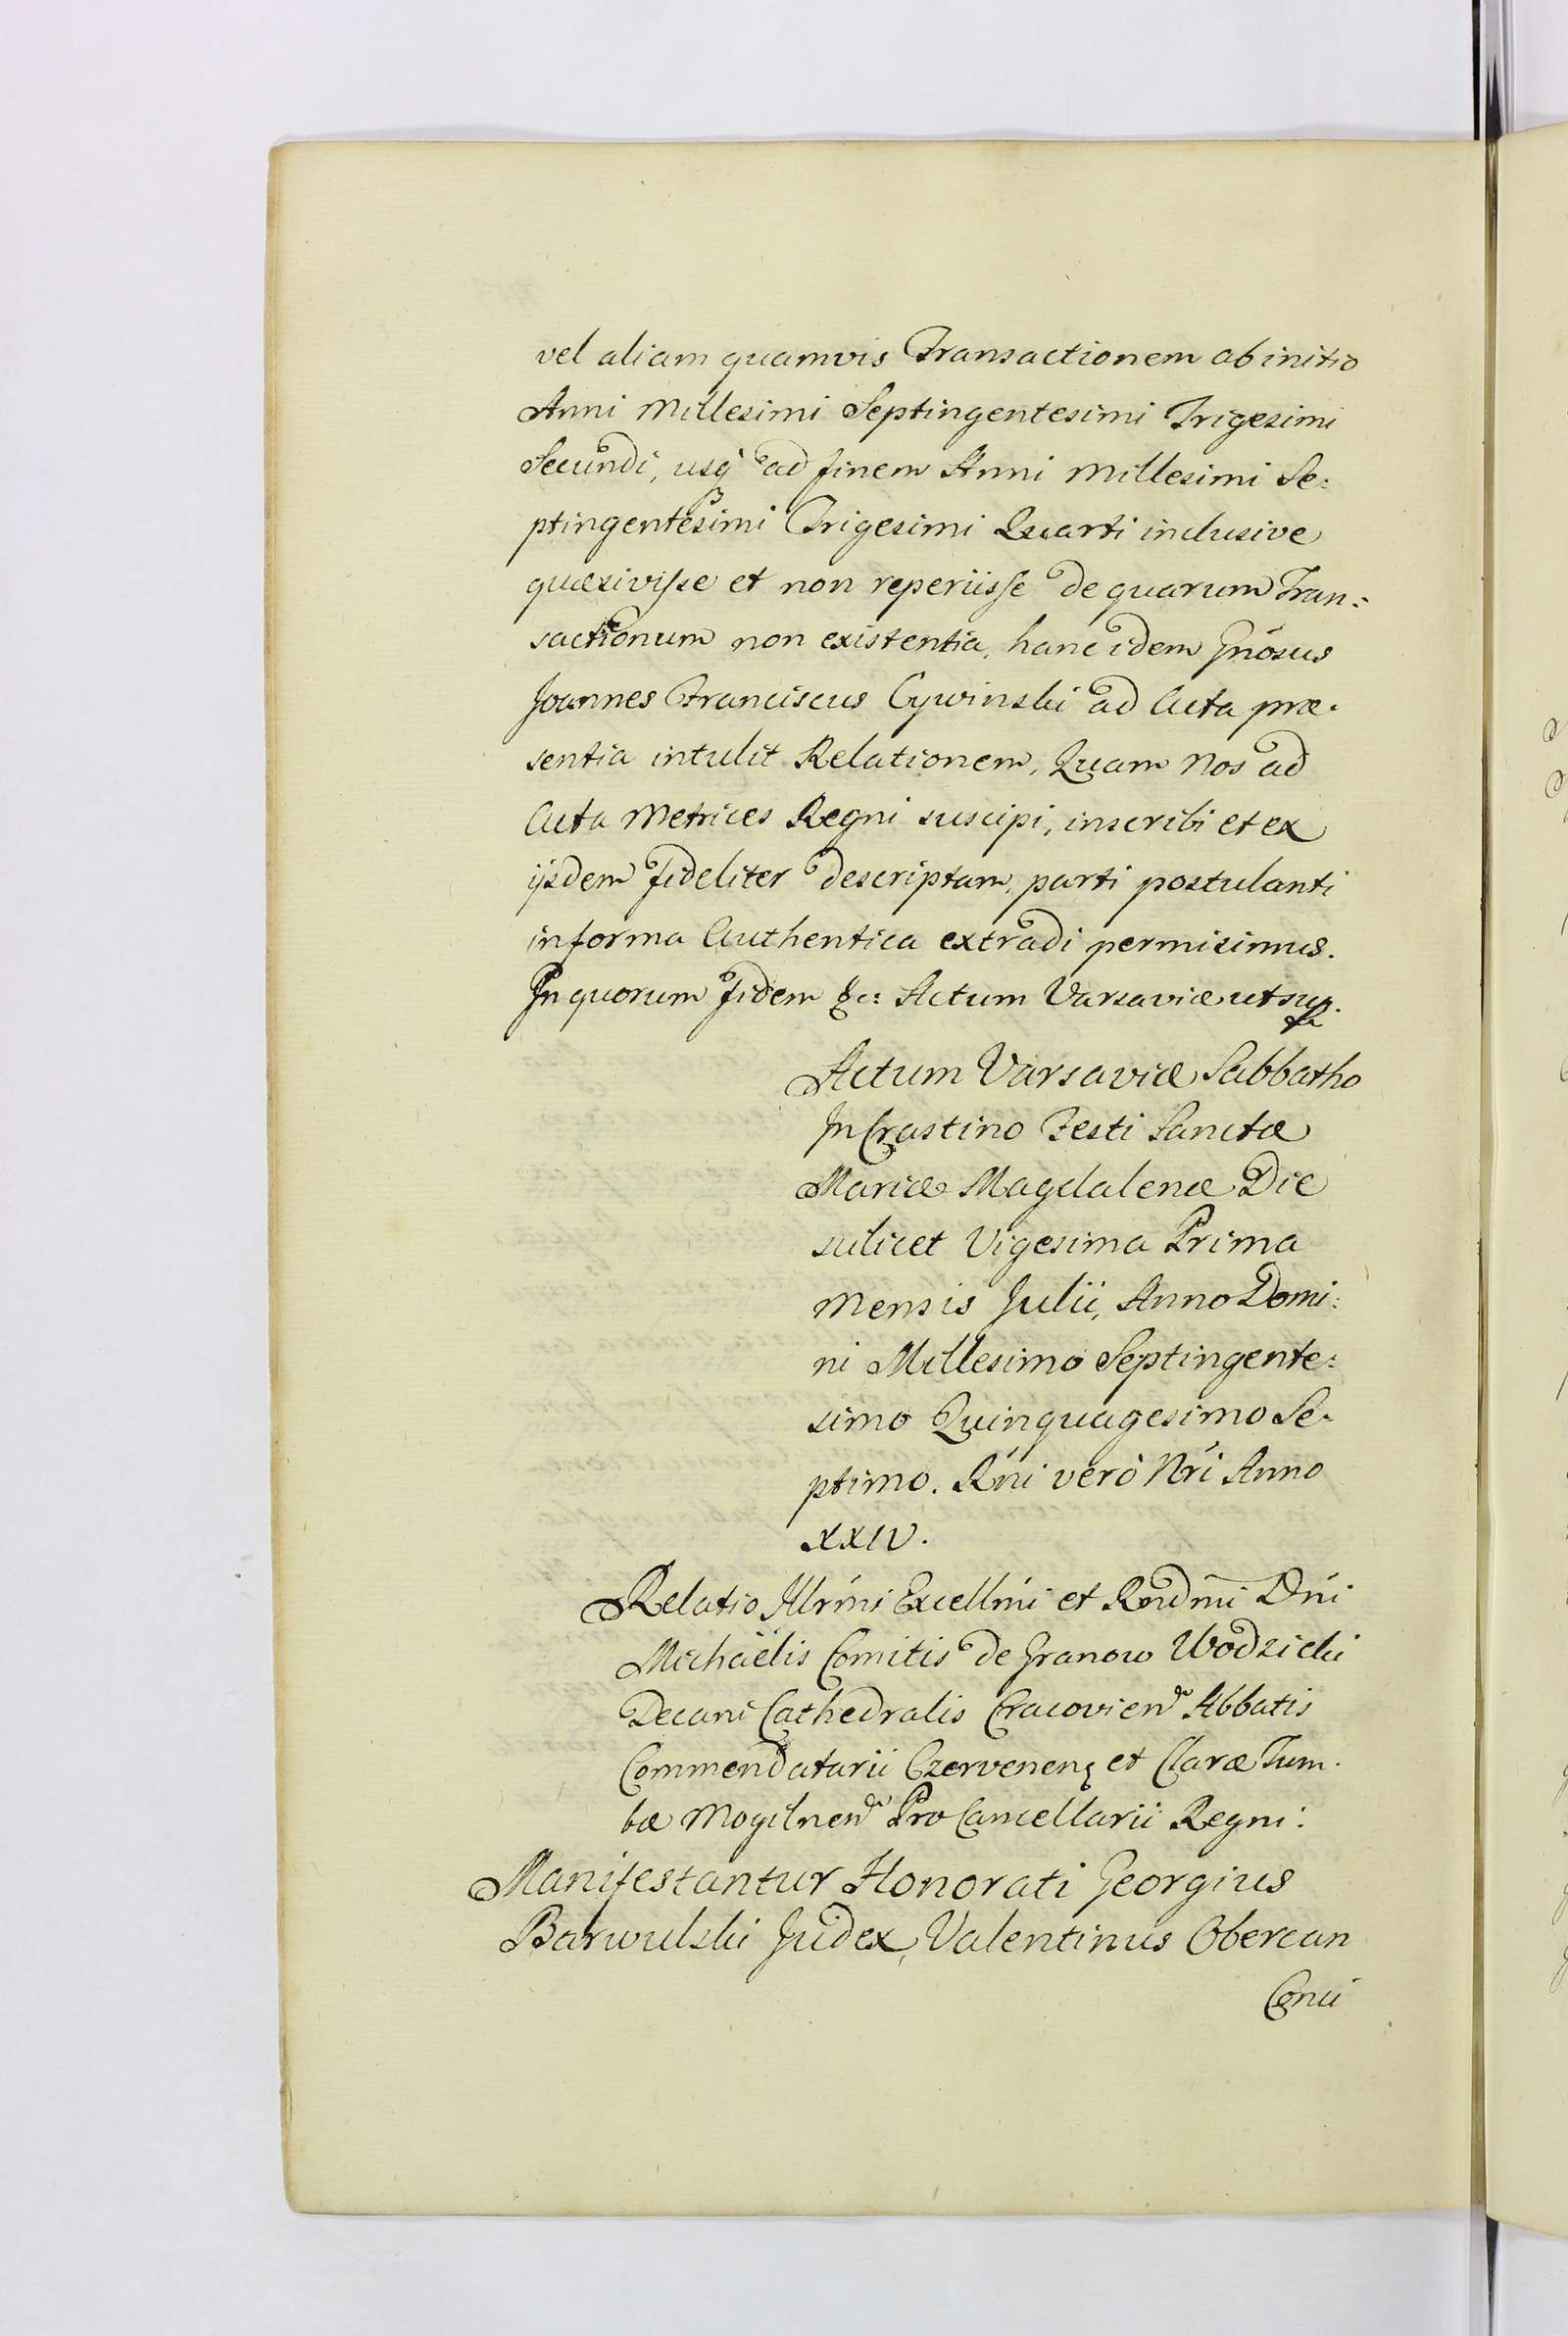 vel aliam quamvis Transactionem ab initio
Anni Millesimi Septingentesimi Trigesimi
Secundi, usq̀ ad finem Anni Millesimi Se:
ptingentesimi Trigesimi Quarti inclusive
quæsivisse et non reperiisse de quarum Tran:
sactionum non existentia, hanc idem Gnósus
Joannes Franciscus Cywinski ad Acta præ:
sentia intulit Relationem, Quam Nos ad
Acta Metrices Regni suscipi, inscribi et ex
ijsdem fideliter descriptam, parti postulanti
in forma Authentica extradi permisimus.
In quorum fidem &c: Actum Varsaviæ ut sup.
Actum Varsaviæ Sabbatho
In Crastino Festi Sanctæ
Mariæ Magdalenæ Die
scilicet Vigesima Prima
Mensis Julii, Anno Domi:
ni Millesimo Septingente:
simo Quinquagesimo Se:
ptimo. Rńi verò Nrí Anno
XXIV.
Relatio Illrḿi Excellḿi et Rǹdmi Dńi
Michaëlis Comitis de Granow Wodzicki
Decani Cathedralis Cracovien̄ Abbatis
Commendatarii Czervenenş et Claræ Tum:
bæ Mogilnen̄ Pro Cancellarii Regni:
Manifestantur Honorati Georgius
Barwulski Judex, Valentinus Obercan
Conci